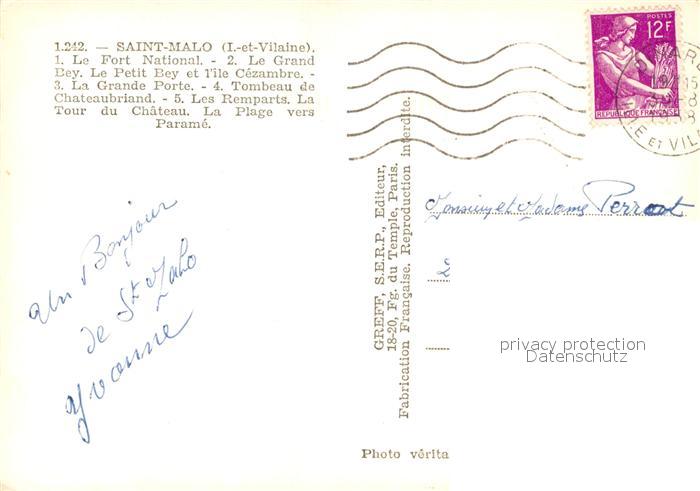 1.242. — SAINT-MALO (I.-et-Vilaine).
1. Le Fort National. - 2. Le Grand
Bey. Le Petit Bey et l'île Cézambre. -
3. La Grande Porte. - 4. Tombeau de
Chateaubriand. - 5. Les Remparts. La
Tour du Château. La Plage vers
Paramé.
POSTES
12F
REPUBLIQUE FRANÇAISE
ET VIL
Monsieur et Madame Perrout
2
Un Bonjour
de St Malo
Yvonne
GREFF, S.E.R.P., Editeur,
18-20, Fg. du Temple, Paris.
Fabrication Française. Reproduction interdite.
privacy protection
Datenschutz
Photo vérita